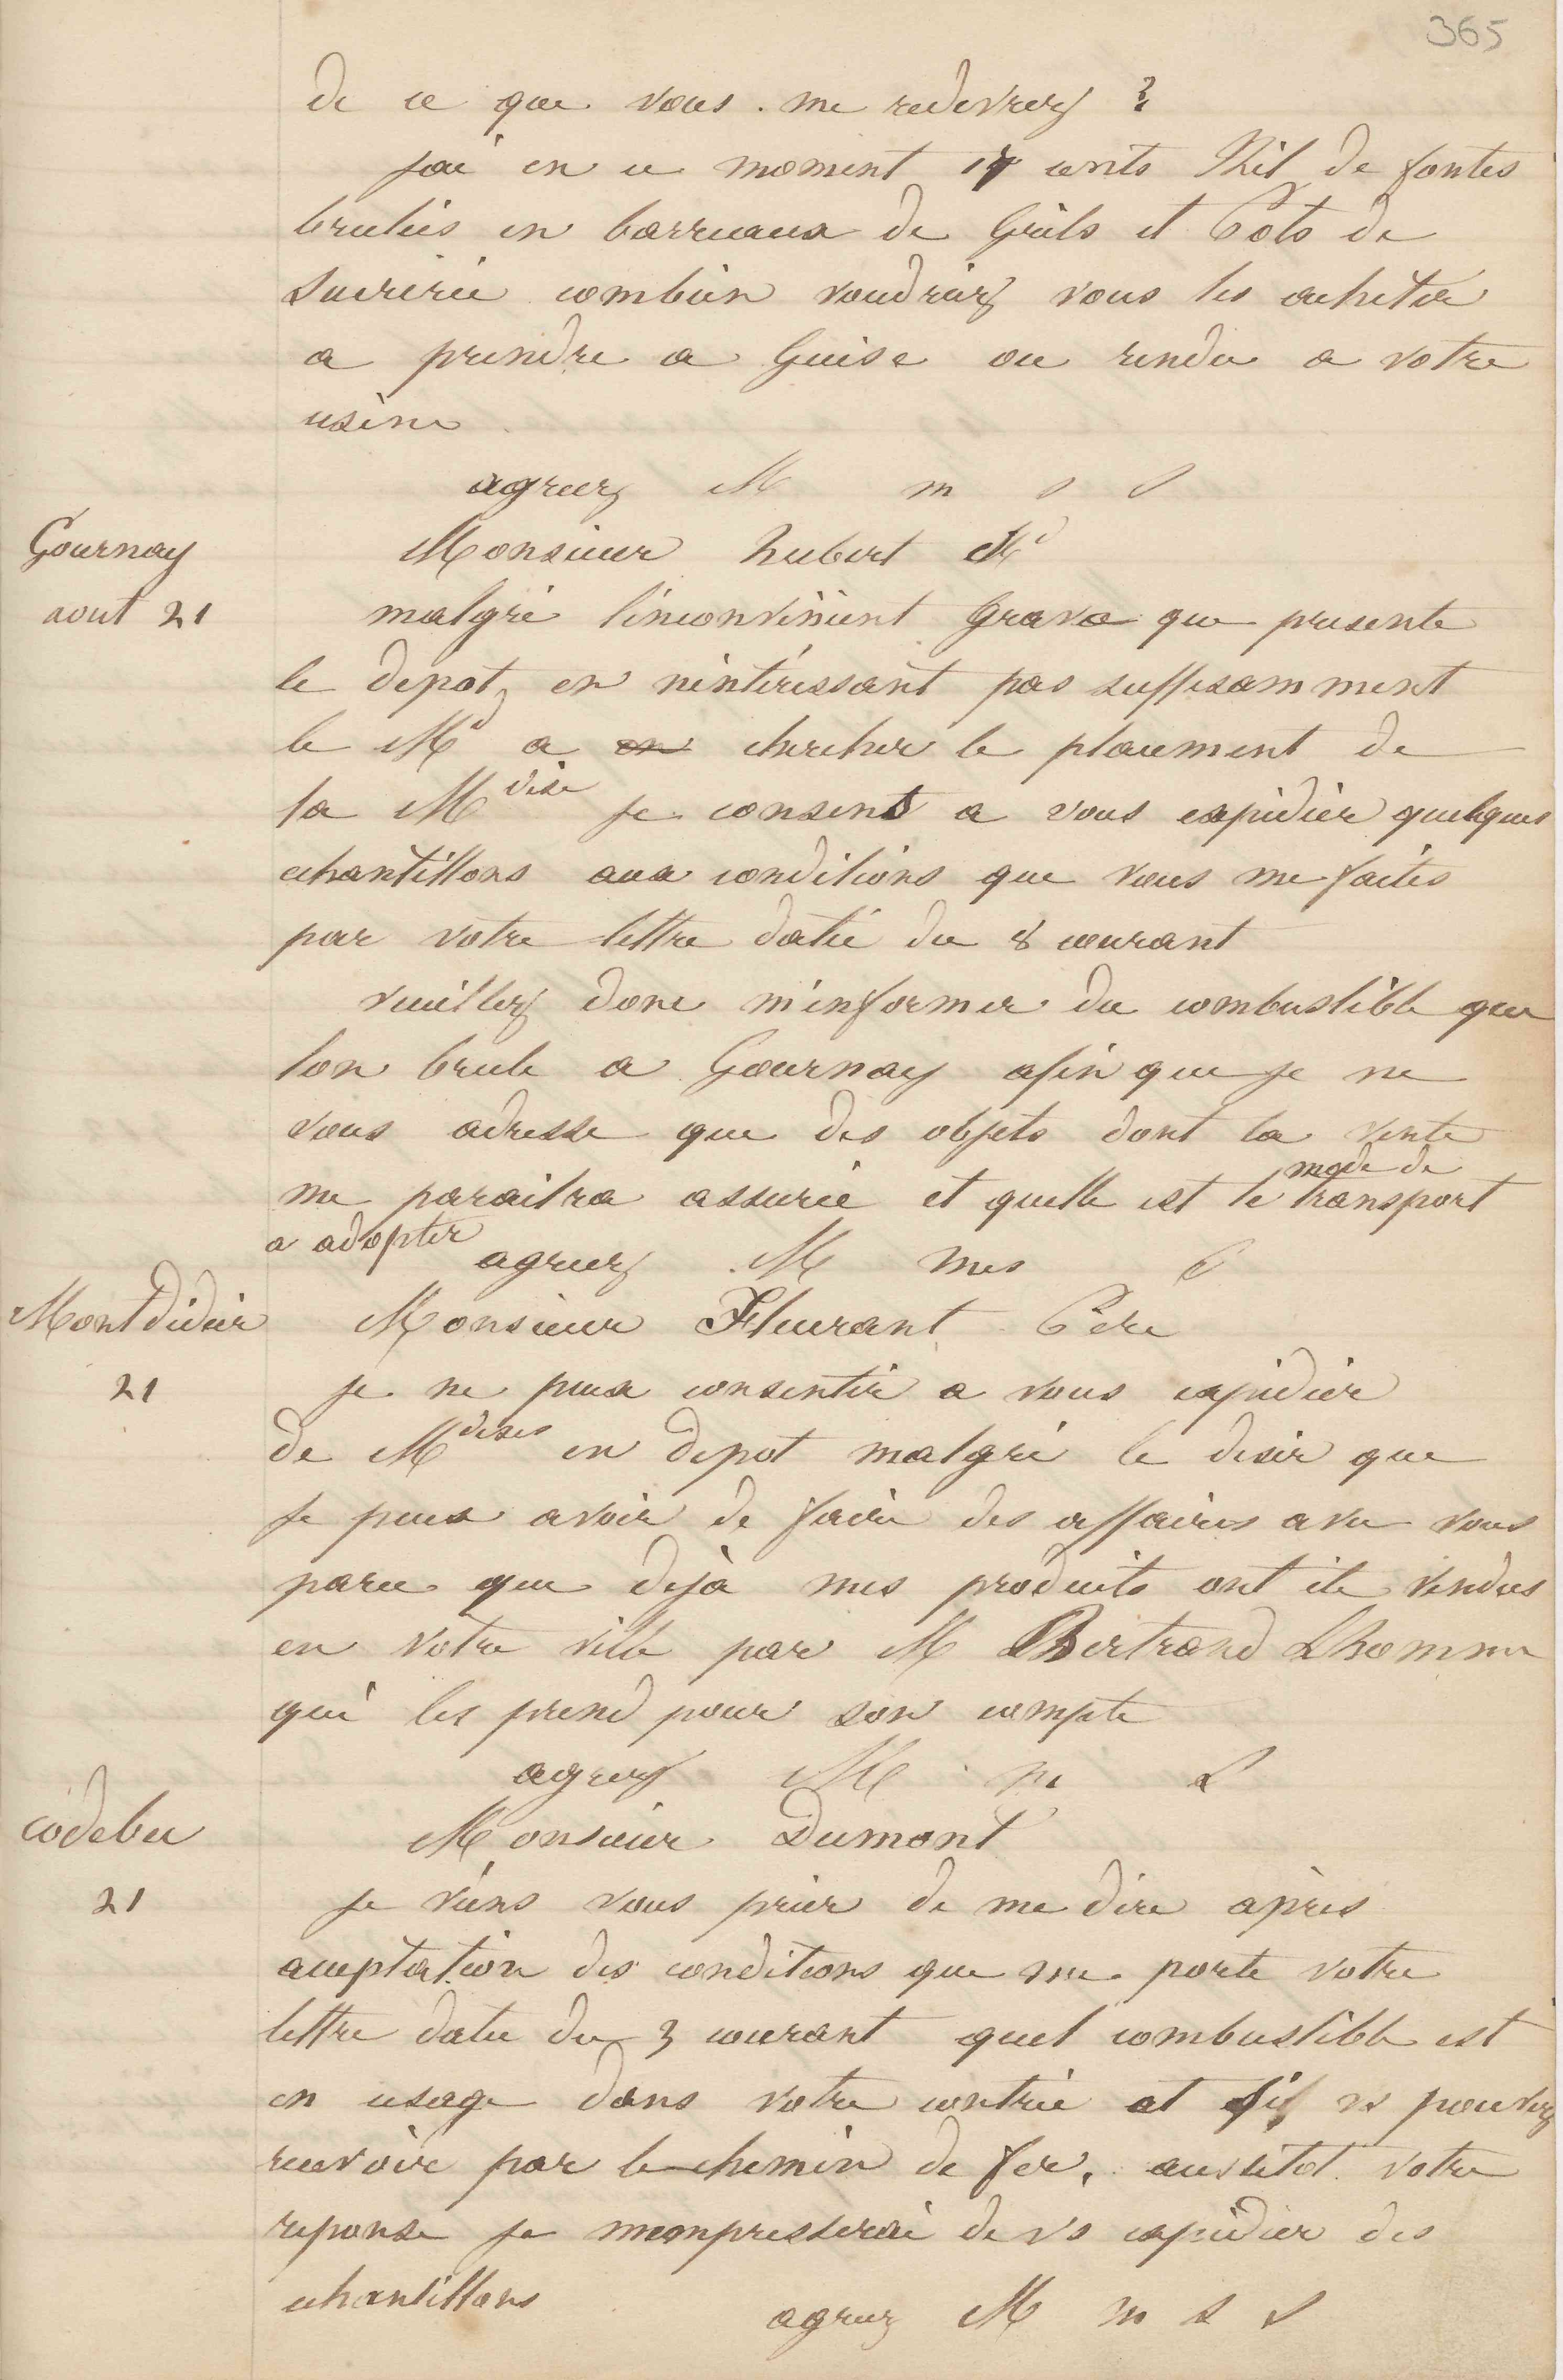 365
de ce que vous me redevrez ?
jai en ce moment 17 cents Kil de fontes
brulées en barreaux de Grils et Pots de
sucrerie combien voudriez vous les acheter
a prendre a Guise ou rendu a votre
usine
agreez M m s s
Gournay
aout 21
Monsieur hubert Md
malgré linconvénient Grave que presente
le depot, en nintéressant pas suffisamment
le Md a en chercher le placement de
la Mdise je consens a vous expédier quelques
echantillons aux conditions que vous me faites
par votre lettre datée du 8 courant
veuillez donc minformer du combustible que
lon brule a Gournay afin que je ne
vous adresse que des objets dont la vente
me paraitra assurée et quelle est le mode de transport
a adopter
agreez M mes s
Montdidier
21
Monsieur Fleurant Père
je ne peux consentir a vous expédier
de Mdises en depot malgré le desir que
je peux avoir de faire des affaires avec vous
parce que dejà mes produits ont été vendus
en votre ville par M Bertrand Lhomme
qui les prend pour son compte
agreez M m s
codebec
21
Monsieur Dumont
je viens vous prier de me dire après
acceptation des conditions que me porte votre
lettre datée du 3 courant quel combustible est
en usage dans votre contrée et si vs pouvez
recevoir par le chemin de fer, aussitot votre
reponse je mempresserai de vs expédier des
echantillons
agreez M m s s